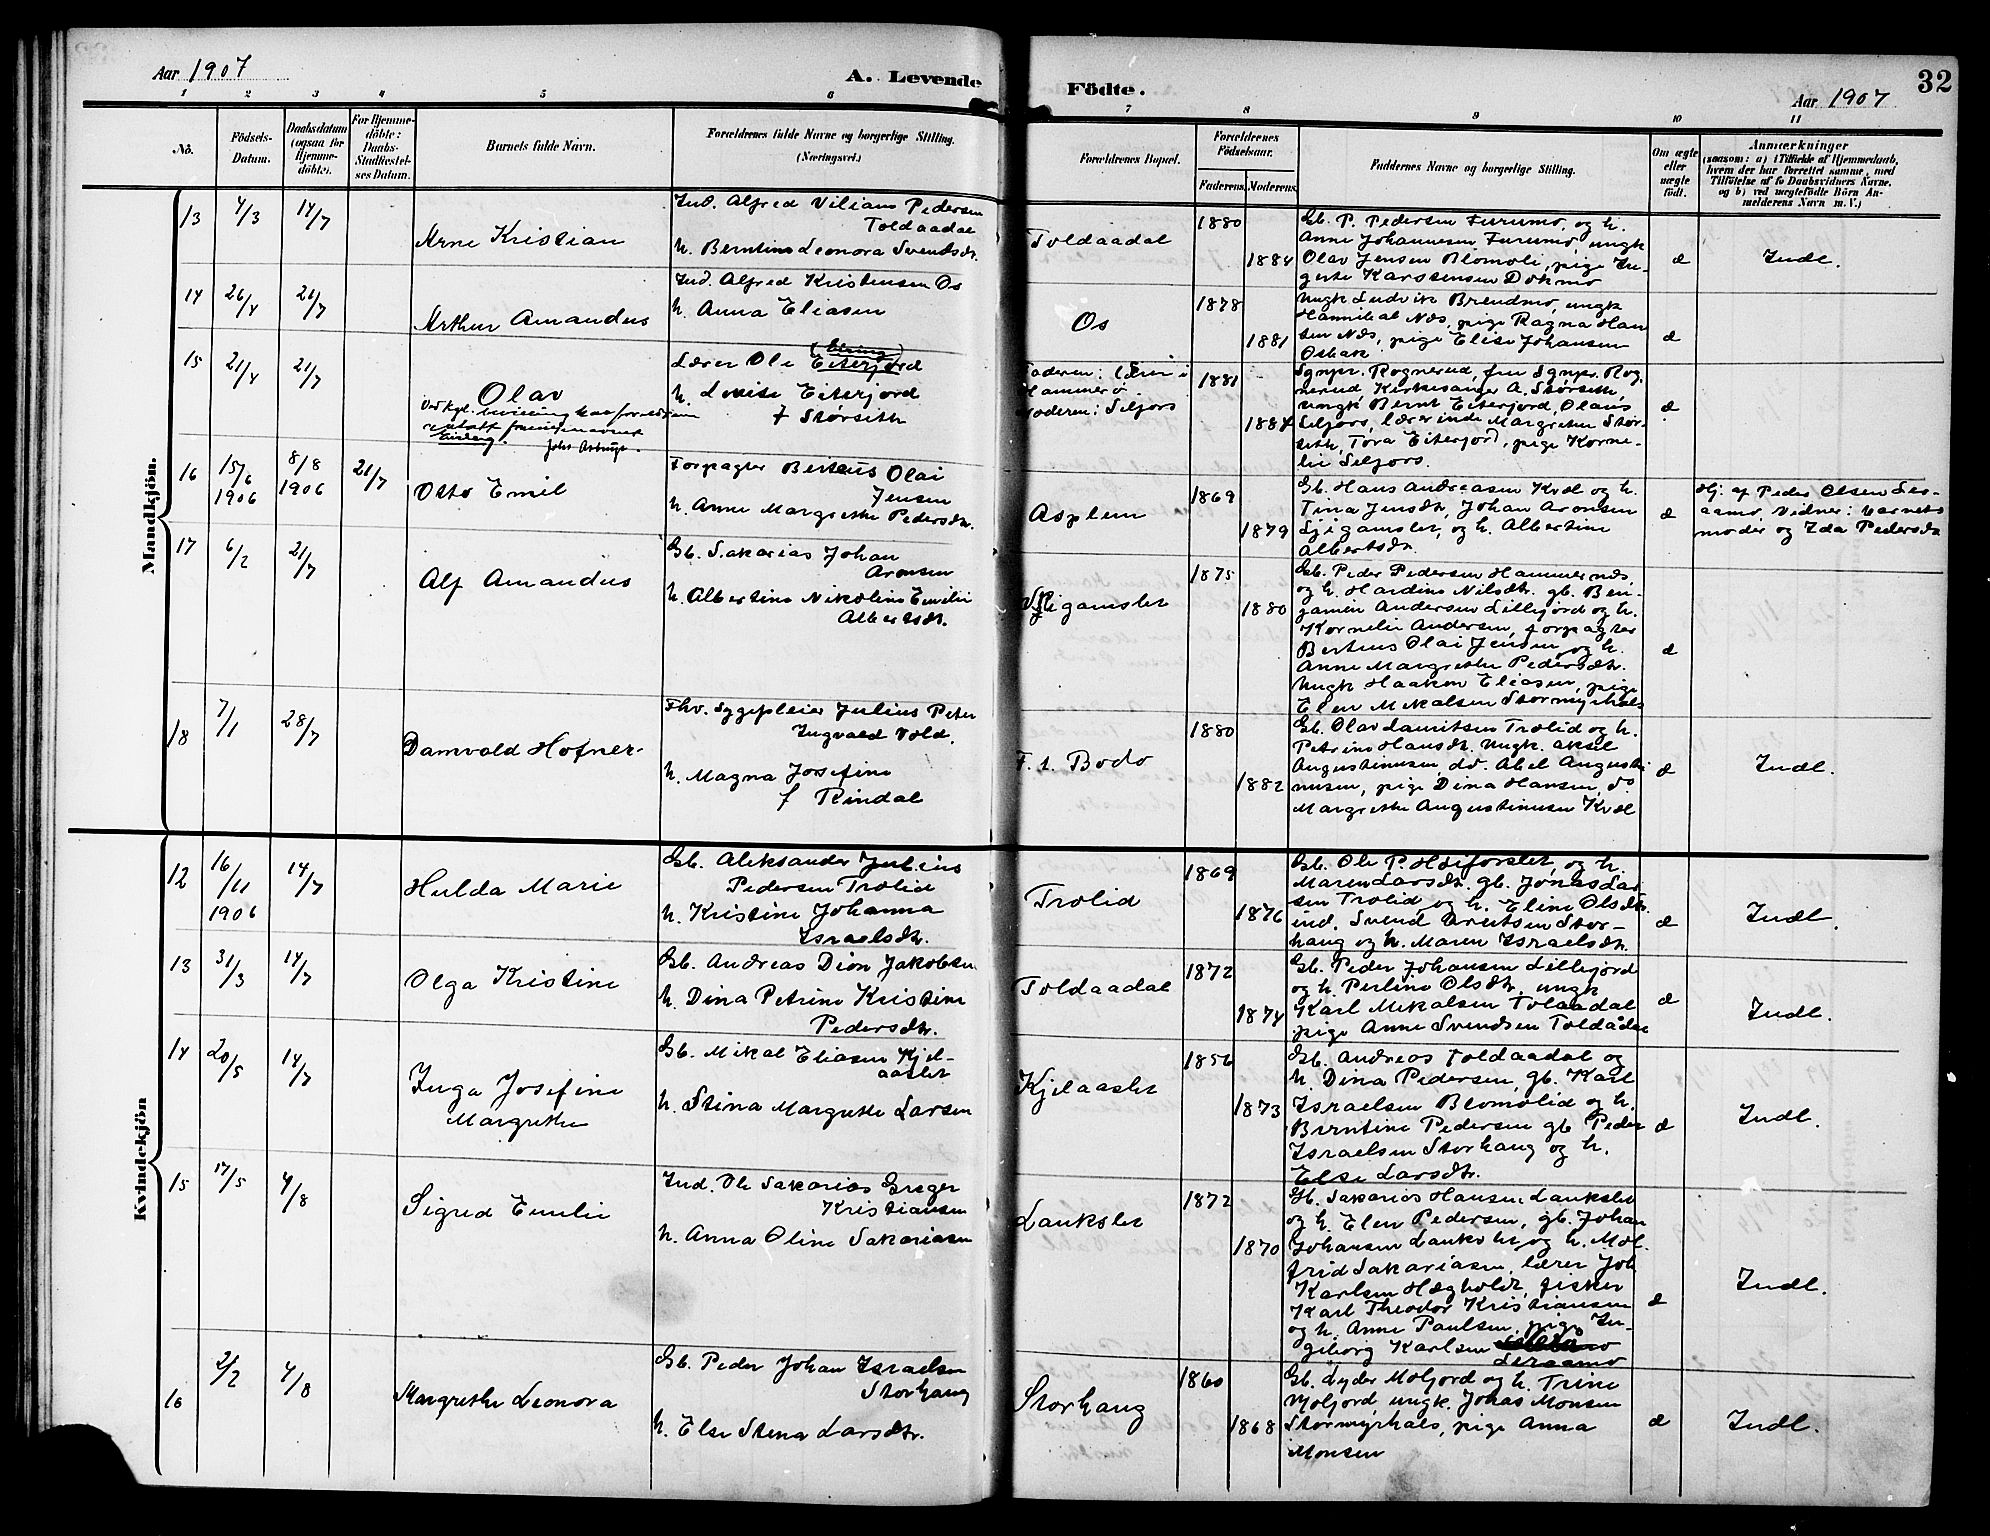 Aar 1907
A. Levende
Födte.
Aar 1907
32
1 2 3 4 5 6 7 8 9 10 11
No.
Födsels-
Datum.
Daabsdatum
(ogsaa for
Hjemme-
döbte).
For Hjemme-
döbte:
Daabs-
Stadfæstel-
ses Datum.
Barnets fulde Navn.
Forældrenes fulde Navne og borgerlige Stilling.
(Næringsvei.)
Forældrenes Bopæl.
Forældrenes
Födselsaar.
Faderens. Moderens.
Faddernes Navne og borgerlige Stilling.
Om ægte
eller
uægte
födt.
Anmærkninger
(saasom: a) i Tilfælde af Hjemmedaab,
hvem der har forrettet samme, med
Tilföielse af to Daabsvidners Navne,
og b) ved uægtefödte Börn An-
melderens Navn m. V.)
Mandkjön.
13
4/3
14/7
Arne Kristian
Ind. Alfred Vilians Pedersen
Toldaadal
h. Berntine Leonora Svendsdtr.
Toldaadal
1880
1884
Gb. P. Pedersen Furumo, og h.
Anne Johannesen Furumo, ungk
Olav Jensen Blomoli, pige In-
gerte Karstensen Dokmo
æ
Indl.
14
26/4
21/7
Arthur Amandus
Ind. Alfred Kristensen Os
h. Anna Eliasen
Os
1878
1881
Ungk Ludvik Brendmo, ungk
Hannibal Næs, pige Ragna Han
sen Næs, pige Elise Johansen
Osbak
æ
15
21/4
21/7
Olav
Ved kgl. bevilling har forældrene
antatt familienavnet
Lærer Ole Eiterjord
h. Lovise Eiterjord
f Störseth
Faderen: Leir i
Hammerö
Moderen: Seljors
1881
1884
Sgnpr. Rognerud, fru Sgnpr. Rog
nerud, Kirkesanger A. Störseth,
ungk Bernt Eiterjord, Olaus
Seljors, lærerinde Margrethe Stör-
seth, Tora Eiterjord, pige Korne-
lie Seljors.
æ
16
15/6
1906
8/8
1906
21/7
Otto Emil
Forpagter Berteus Olai
Jensen
h. Anne Margrethe Pedersdtr.
Asplem
1869
1879
Gb. Hans Andreasen Kvæl og h.
Tina Jensdtr, Johan Aronsen
Ljigamslet, og h. Albertine
Albertsdtr.
æ
Hj. af Peder Olsen Les-
aamo, Vidner: barnets
moder og Ida Pedersdtr
17
6/2
21/7
Alf Amandus
Gb. Sakarias Johan
Aronsen
h. Albertine Nikoline Emilie
Albertsdtr.
Ljigamslet
1875
1880
Gb. Peder Pedersen Hammernæs,
og h. Hardine Nilsdtr. gb. Ben-
jamin Andersen Lillejord og h.
Kornelie Andersen, forpagter
Berteus Olai Jensen, og h.
Anne Margrethe Pedersdtr.
Ungk Haakon Eliasen, pige
Elen Mikalsen Stormyrhals
æ
18
7/1
28/7
Damvald Hofner-
Fhv. Sygepleier Julius Peter
Ingvald Vold.
h. Magna Josefine
f Rindal
F. t. Bodo
1880
1882
Gb. Olav Lauritsen Trolid og h.
Petrine Hansdtr. Ungk. Aksel
Augustinusen, do. Abel Augusti
nusen, pige Dina Hansen, do
Margrethe Augustinusen Kvæl
æ
Indl.
Kvindekjön
12
16/11
1906
14/7
Hulda Marie
Gb. Aleksander Julius
Pedersen Trolid
h. Kristine Johanna
Israelsdtr.
Trolid
1869
1876
Gb. Ole P. Höiforslet, og h.
Maren Larsdtr. gb. Jonas Lar
sen Trolid og h. Eline Olsdtr.
ind. Svend Arntsen Stor-
haug og h. Maren Israelsdtr.
æ
Indl.
13
31/3
14/7
Olga Kristine
Gb. Andreas Dion Jakobsen
h. Dina Petrine Kristine
Pedersdtr.
Toldaadal
1872
1874
Gb. Peder Johansen Lillejord
og h. Perline Olsdtr, ungk
Karl Mikalsen Tolaadal
pige Anne Svendsen Toldådal
æ
Indl.
14
20/5
14/7
Inga Josefine
Margrethe
Gb. Mikal Eliasen Kjel-
aaslet
h. Stina Margrethe Larsen
Kjelaaslet
1856
1873
Gb. Andreas Toldaadal og
h. Dina Pedersen, gb. Karl
Israelsen Blomolid og h.
Berntine Pedersen gb Peder
Israelsen Storhaug og h.
Else Larsdtr.
æ
Indl.
15
17/5
4/8
Sigred Emilie
Ind. Ole Sakarias Greger
Kristiansen
h. Anna Oline Sakariasen
Lankslet
1872
1870
Gb. Sakarias Hansen Lankslet
og h. Elen Pedersen, gb. Johan
Johansen Lankslet og h. Mol-
frid Sakariasen, lærer Joh
Karlsen Hægholdt, fisker
Karl Theodor Kristiansen
og h. Anne Paulsen, pige In-
geborg Karlsen
Leraamo
æ
Indl.
16
2/2
4/8
Margrethe Leonora
Gb. Peder Johan Israelsen
Storhaug
h. Else Stina Larsdtr.
Storhaug
1860
1868
Gb. Lyder Moljord og h. Trine
Moljord, ungk. Jonas Monsen
Stormyrhals, pige Anna
Monsen
æ
Indl.